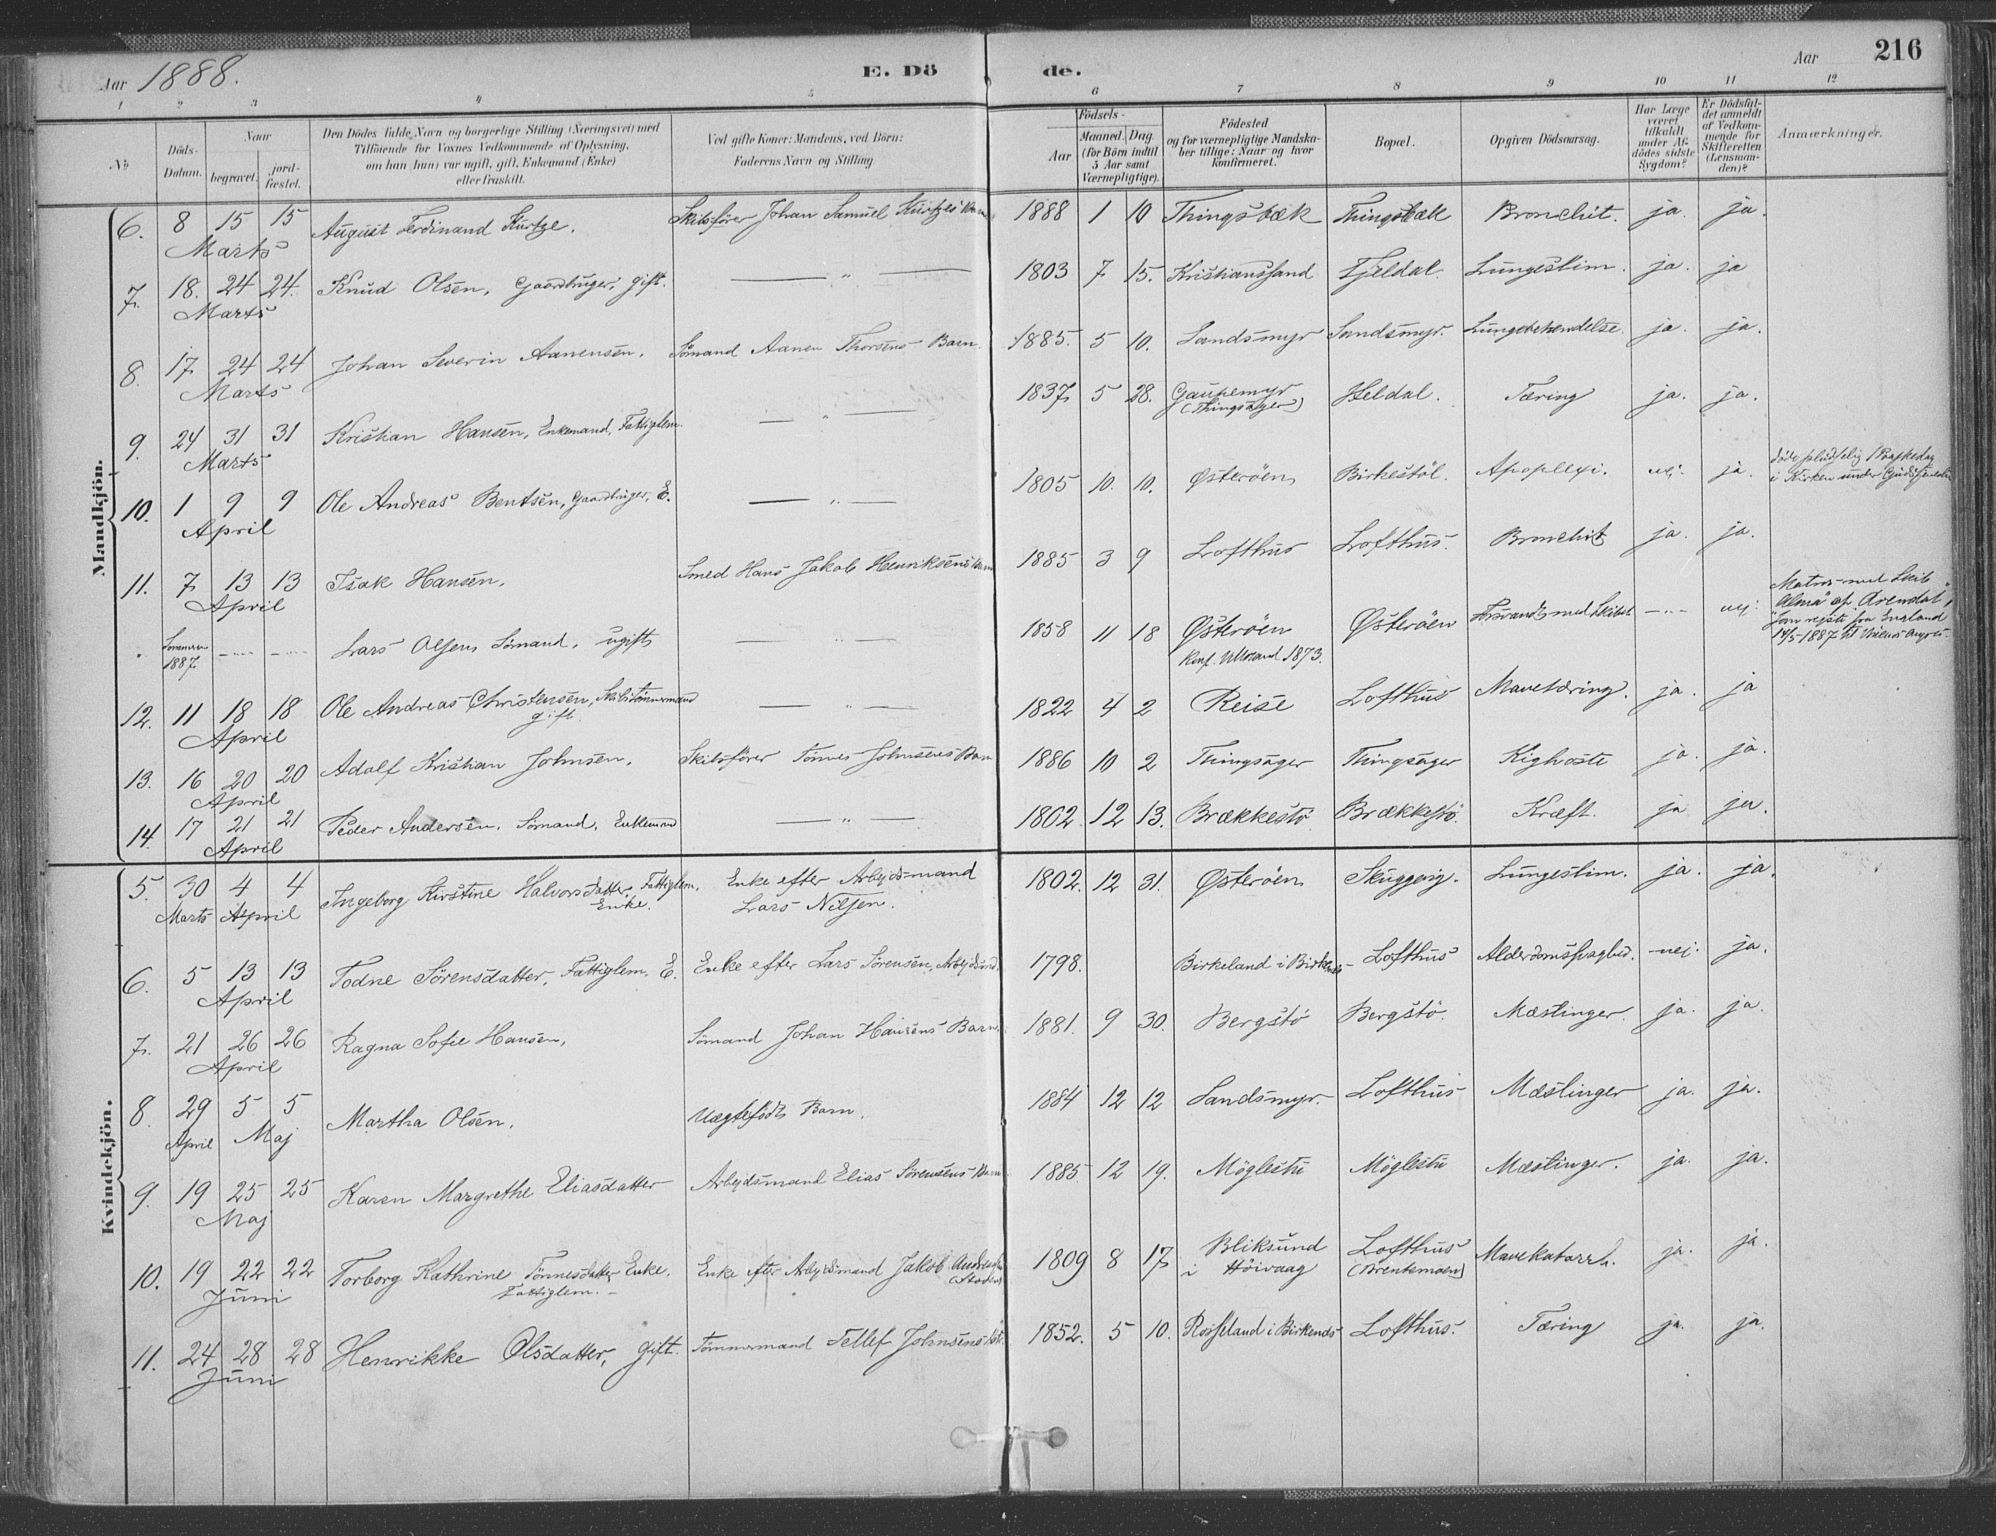 Aar 1888. E. Dö de. Aar 216
1 2 3 4 5 6 7 8 9 10 11 12
No Döds-Datum. Naar begravet. jord-fæstet. Den Dödes fulde Navn og borgerlige Stilling (Næringsvei) med Tilföiende for Voxnes Vedkommende af Oplysning, om han (hun) var ugift, gift, Enkemand (Enke) eller fraskilt. Ved gifte Koner: Mandens, ved Börn: Faderens Navn og Stilling. Aar Födsels- Maaned. Dag. (for Börn indtil 5 Aar samt Værnepligtige). Födested og for værnepligtige Mandskaber tillige: Naar og hvor konfirmeret. Bopæl. Opgiven Dödsaarsag. Har Læge været tilkaldt under Afdödes sidste Sygdom? Er Dödsfaldet anmeldt af Vedkommende for Skifteretten (Lensmanden)? Anmærkninger.
Mandkjön.
6. 8 15 15 Marts August Ferdinand Kurtze. Skibsförer Johan Samuel Kurtzes Barn 1888 1 10 Thingsbæk Thingsbæk Bronchit. ja. ja.
7. 18. 24 24. Marts Knud Olsen, Gaardbruger, gift. — „ — 1803 7 15. Kristianssand Fjeldal. Lungestim. ja. ja
8. 17. 24 24 Marts Johan Severin Aanensen. Sömand Aanen Thorsens Barn. 1885. 5 10. Sandsmyr Sandsmyr. Lungebetændelse. ja. ja.
9. 24 31 31 Marts Kristian Hansen, Enkemand, Fattiglem. — „ — 1837 5 28. Gaupemyr (Thingsager) Heldal. Tæring ja. ja.
10. 1 9 9 April Ole Andreas Bentsen, Gaardbruger, E. — „ — 1805 10. 10. Østeröen Birkestöl. Apoplexi. nej. ja. döde pludselig 1 Paaskedag i Kirken under Gudstjenesten
11. 7 13 13 April Isak Hansen. Smed Hans Jakob Henriksens Barn 1885 3 9 Lofthus Lofthus. Bronchit ja. ja.
„ Sommeren 1887. — „ — — „ — Lars Olsen Sömand, ugift — „ — 1858 11 18 Østeröen Konf. Vestre 1873. Østeröen Forsvandt med Skibet — „ — nej. Matros med Skib „Alma" af Arendal, som rejste fra England 14/5 1887 til Buenos Ayres.
12. 11 18 18 April Ole Andreas Christensen, Skibstömmermand gift — „ — 1822 4 2 Reise Lofthus Mavetæring. ja. ja
13. 16 20 20 April Adolf Kristian Johnsen. Skibsförer Tönnes Johnsens Barn 1886 10 2 Thingsager Thingsager Kighoste ja. ja.
14. 17 21 21 April Peder Andersen. Sömand, Enkemand — „ — 1802 12 13. Brækkestö Brækkestö. Kræft. ja ja.
Kvindekjön.
5. 30 Marts 4 4 April Ingeborg Kirstine Halvorsdatter, Fattiglem, Enke. Enke efter Arbejdsmand Lars Nilsen. 1802. 12 31. Østeröen Skuggevig. Lungestim. ja. ja.
6. 5 13 13 April Todne Sörensdatter, Fattiglem, E. Enke efter Lars Sörensen, Arbejdsmd. 1798. Birkeland i Birkenes Lofthus Alderdomssvaghed. nej. ja.
7. 21 26 26 April Ragna Sofie Hansen, Sömand Johan Hansens Barn. 1881. 9 30. Bergstö Bergstö. Mæslinger. ja. ja.
8. 29 April 5 5 Maj Martha Olsen. Uægtefödt Barn. 1884 12 12 Sandsmyr. Lofthus Mæslinger ja. ja.
9. 19 25 25 Maj Karen Margrethe Eliasdatter Arbejdsmand Elias Sörensens Barn 1885. 12 19. Möglestu Möglestu Mæslinger. ja. ja.
10. 19 22 22 Juni Torborg Kathrine Tönnesdatter Enke. Fattiglem. Enke efter Arbejdsmand Jakob 1809 8 17 Bliksund i Höivaag Lofthus (Brentemoen) Mavekatarrh. ja. ja.
11. 24 28 28 Juni Henrikke Olsdatter, gift. Tömmermand Tellef Johnsens 1852. 5 10. Rosseland i Birkenes Lofthus. Tæring ja. ja.